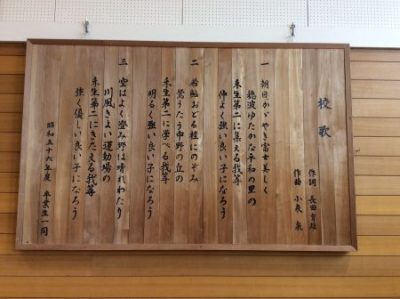 校歌
作詞 長田育雄
作曲 小泉 泉
一 朝日かゞやき富士美しく
穂波ゆたかな平和の里の
来生第二に集える我等
仲よく強い良い子になろう
二 若鮎おどる桂にのぞみ
鶯うたう中野の丘の
来生第二に学べる我等
明るく強い良い子になろう
三 空はよく澄み野は晴れわたり
川風きよい運動場の
来生第二にきたえる我等
強く優しい良い子になろう
昭和五十六年度 卒業生一同